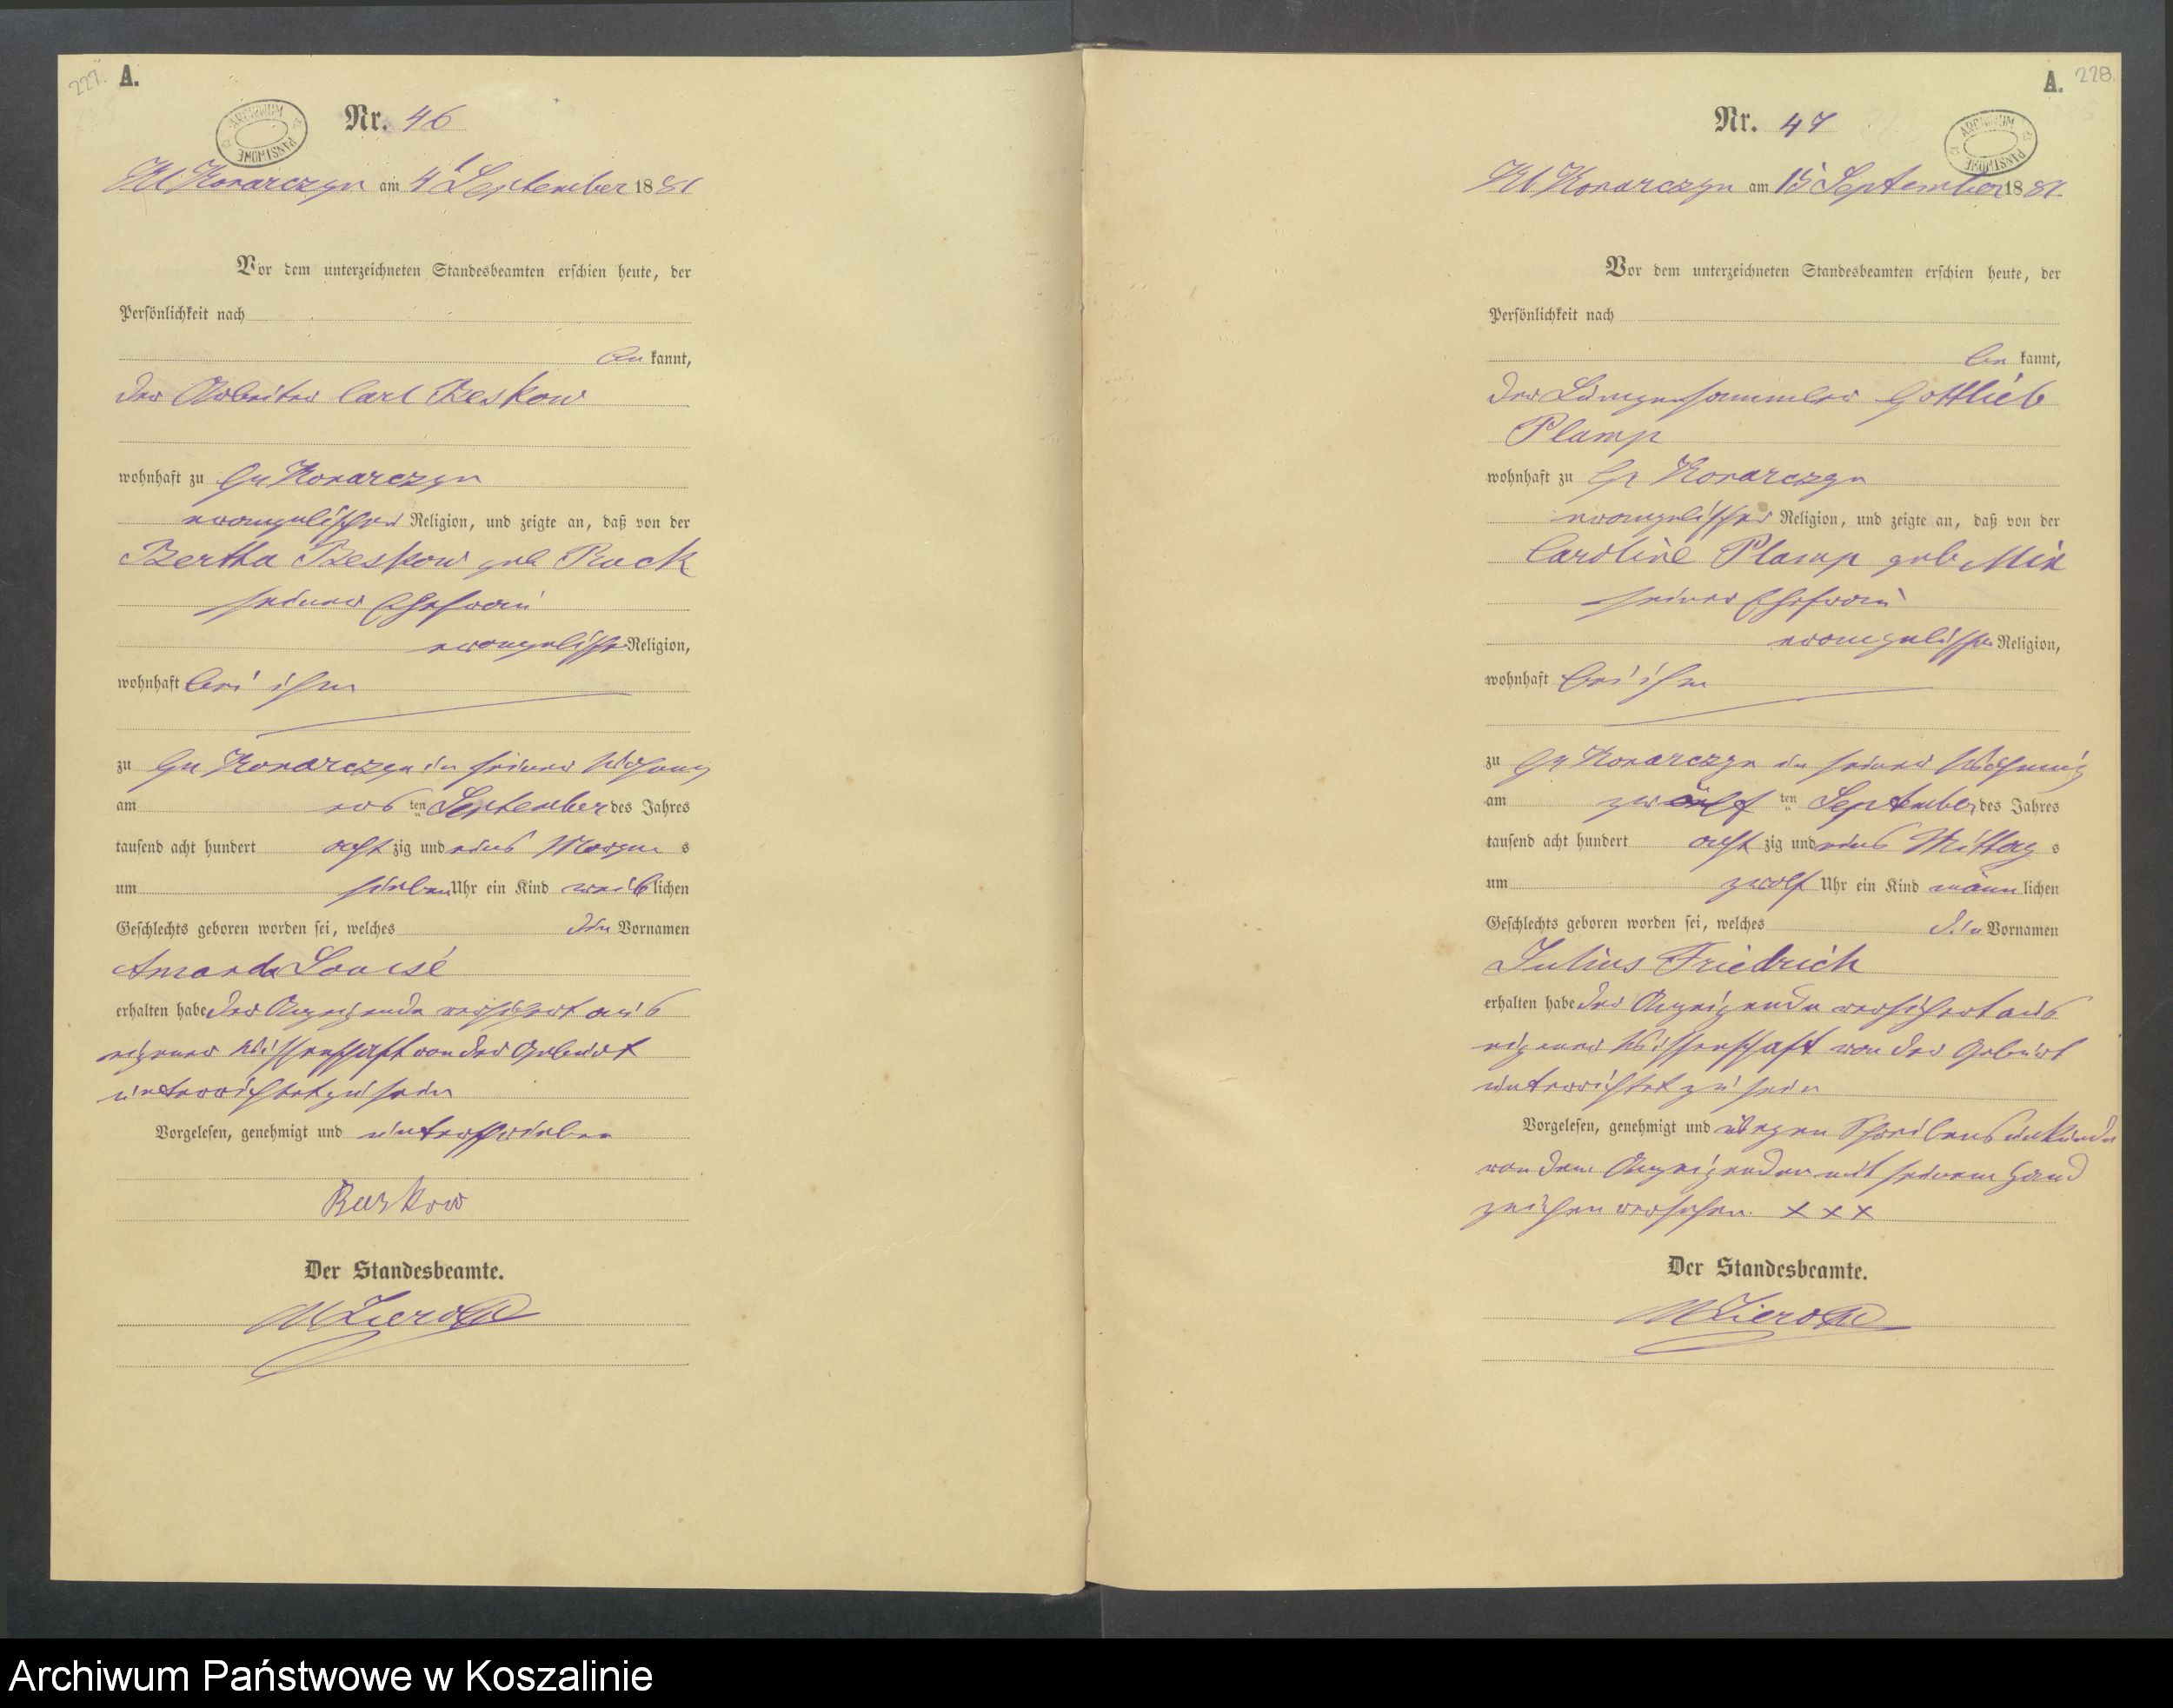 227.
A.
ARCHIWUM PAŃSTWOWE
Nr. 46
Kl Konarczyn am 4 September 1881
Vor dem unterzeichneten Standesbeamten erschien heute, der
Persönlichkeit nach
be kannt,
der Arbeiter Carl Beskow
wohnhaft zu Gr Konarczyn
evangelischer Religion, und zeigte an, daß von der
Bertha Beskow geb Rock
seiner Ehefrau
evangelischer Religion,
wohnhaft bei ihm
zu Gr Konarczyn in seiner Wohnung
am ten September des Jahres
tausend acht hundert acht zig und eins Morgen s
um sieben Uhr ein Kind weib lichen
Geschlechts geboren worden sei, welches den Vornamen
Amanda Louise
erhalten habe der Anzeigende versichert aus
eigener Wissenschaft von der Geburt
unterrichtet zu sein
Vorgelesen, genehmigt und unterschrieben
Beskow
Der Standesbeamte.
228.
A.
ARCHIWUM PAŃSTWOWE
Nr. 47
Kl Konarczyn am 15 September 1881
Vor dem unterzeichneten Standesbeamten erschien heute, der
Persönlichkeit nach
be kannt,
der Lumpensammler Gottlieb
Plamp
wohnhaft zu Gr Konarczyn
evangelischer Religion, und zeigte an, daß von der
Caroline Plamp geb Mix
seiner Ehefrau
evangelischer Religion,
wohnhaft bei ihm
zu Gr Konarczyn in seiner Wohnung
am zwölf ten September des Jahres
tausend acht hundert acht zig und eins Mittag s
um zwölf Uhr ein Kind männ lichen
Geschlechts geboren worden sei, welches den Vornamen
Julius Friedrich
erhalten habe der Anzeigende versichert aus
eigener Wissenschaft von der Geburt
unterrichtet zu sein
Vorgelesen, genehmigt und wegen Schreibensunkunde
von dem Anzeigenden mit seinem Hand
zeichen versehen. x x x
Der Standesbeamte.
Archiwum Państwowe w Koszalinie